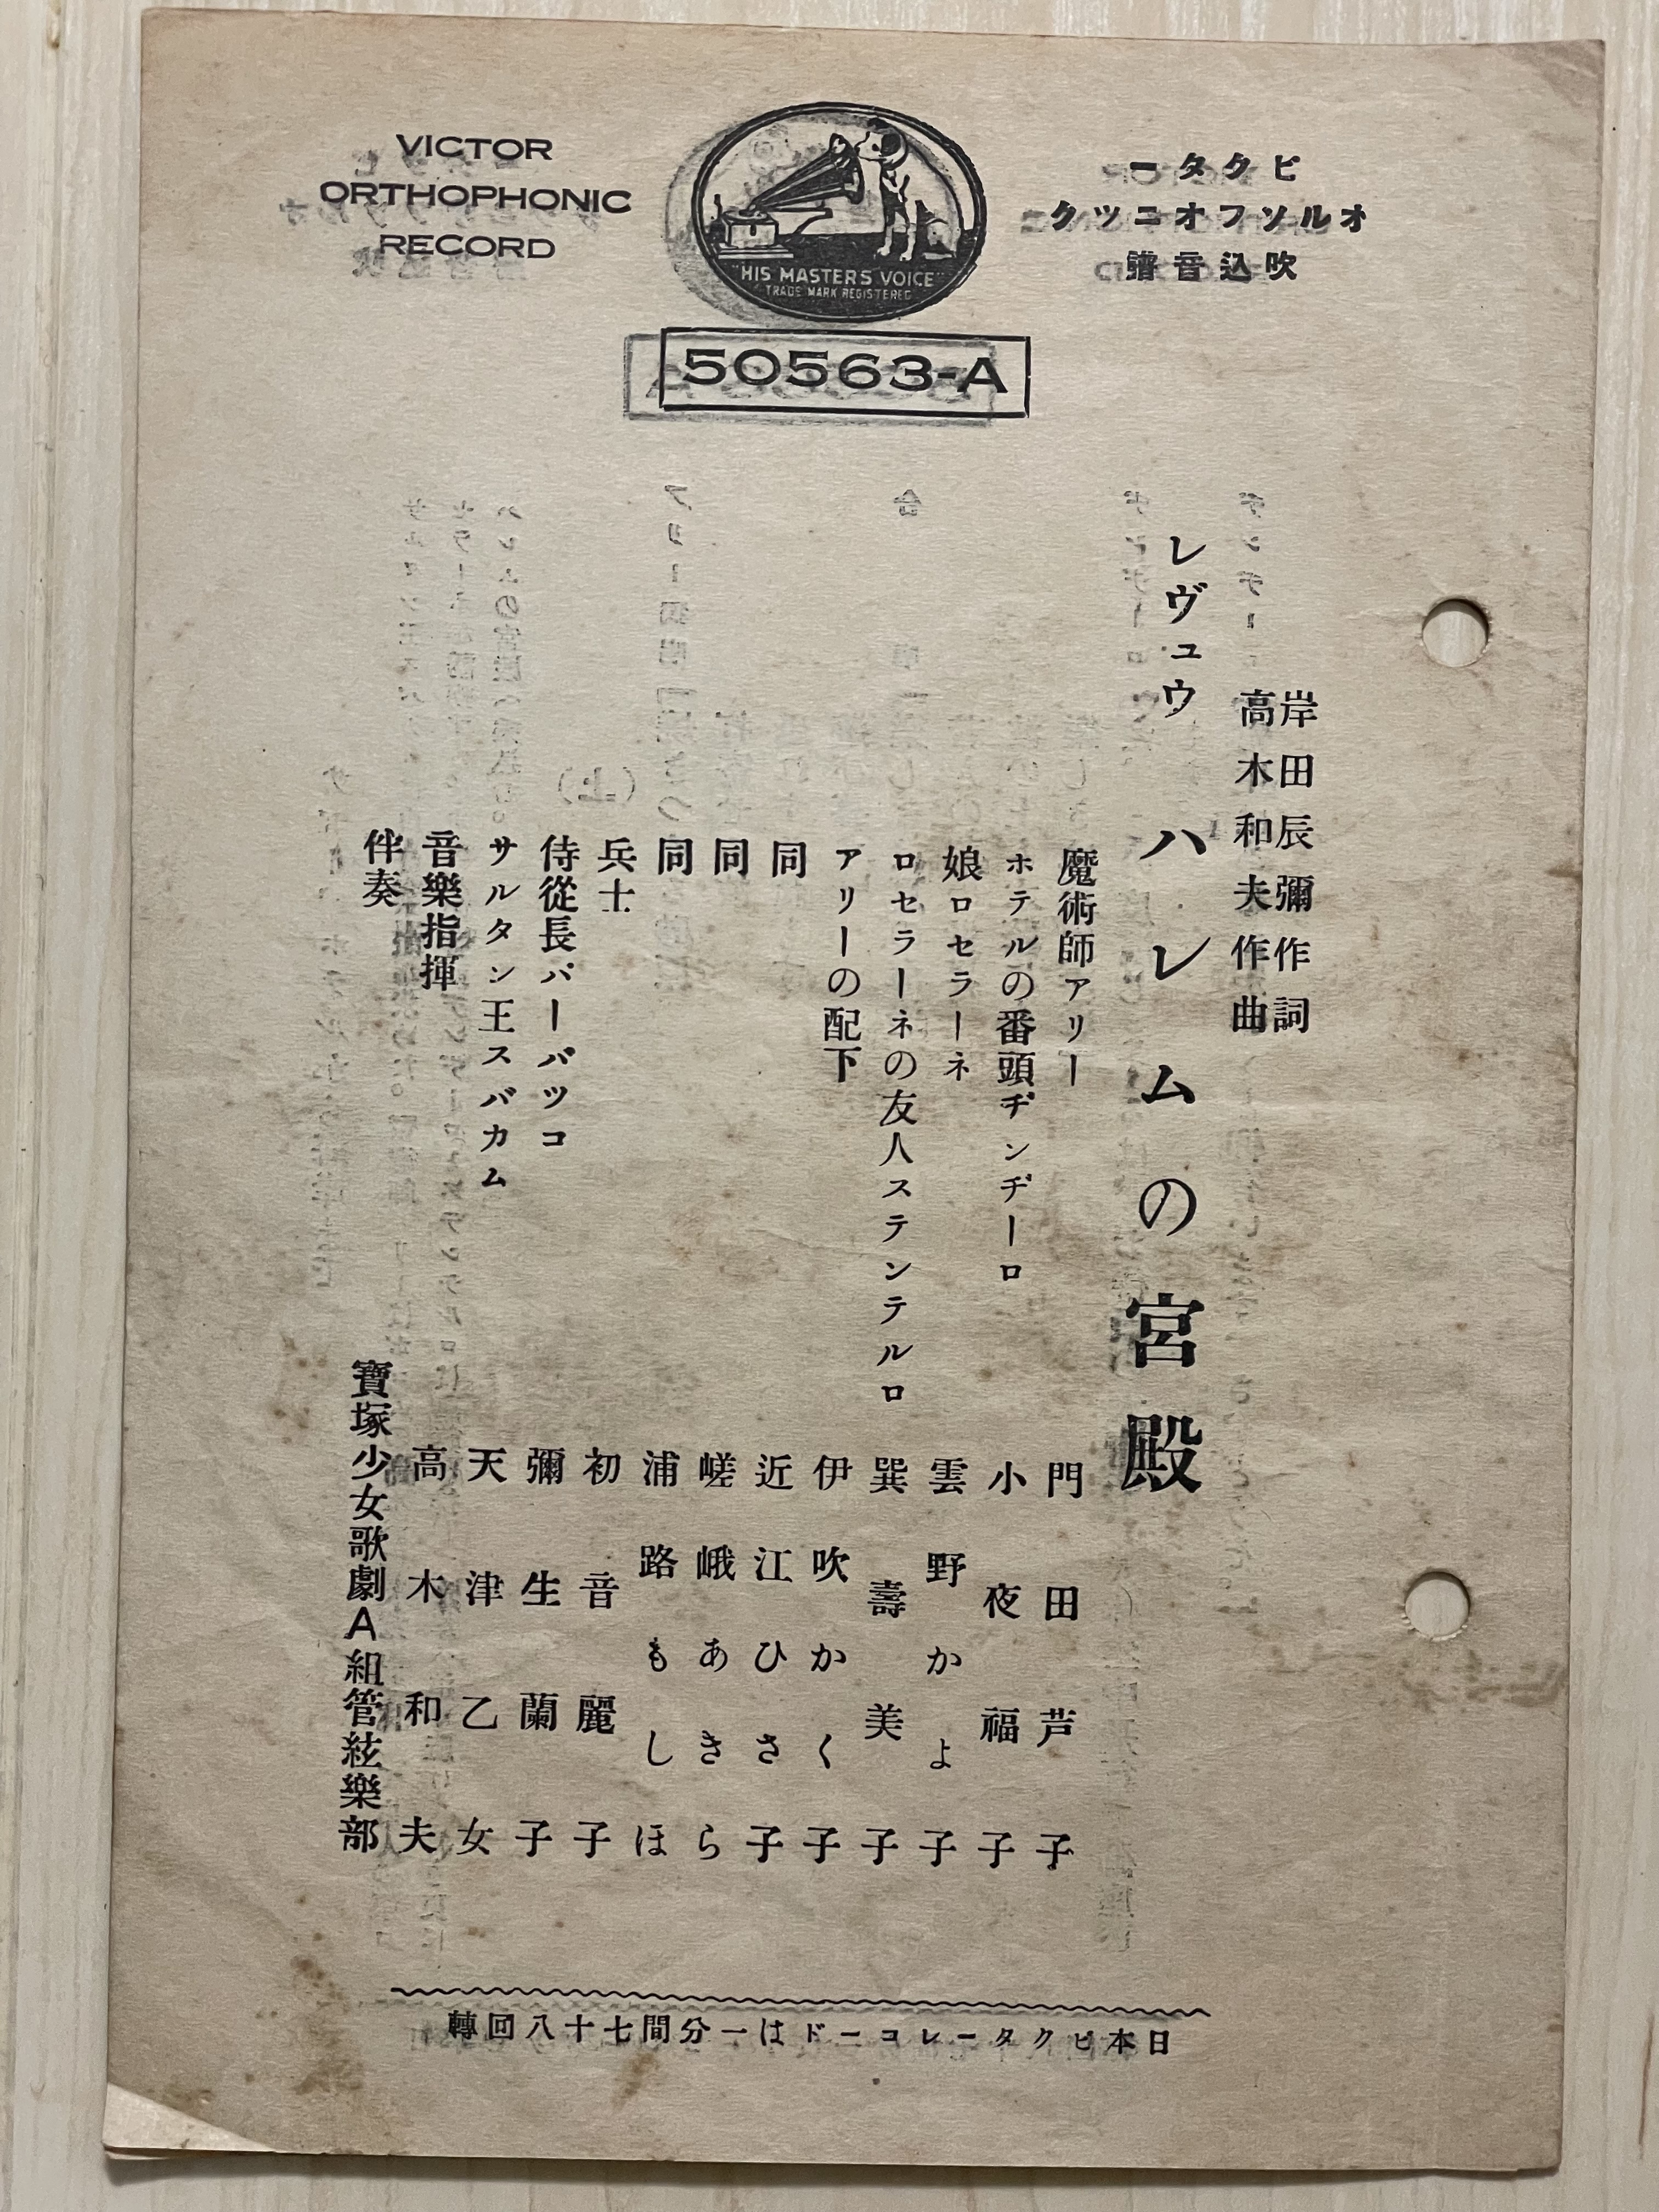 VICTOR
ORTHOPHONIC
RECORD
"HIS MASTERS VOICE"
TRADE MARK REGISTERED
ビクター
オルソフオニツク
吹込音譜
50563-A
岸田辰彌作詞
高木和夫作曲
レヴュウ ハレムの宮殿
魔術師アリー 門田芦子
ホテルの番頭ヂンヂーロ 小夜福子
娘ロセラーネ 雲野かよ子
ロセラーネの友人ステンテルロ 巽壽美子
アリーの配下 伊吹かく子
同 近江ひさ子
同 嵯峨あきら
同 浦路もしほ
兵士 初音麗子
侍從長バーバツコ 彌生蘭子
サルタン王スバカム 天津乙女
音樂指揮 高木和夫
伴奏 寶塚少女歌劇A組管絃樂部
日本ビクターレコードは一分間七十八回轉